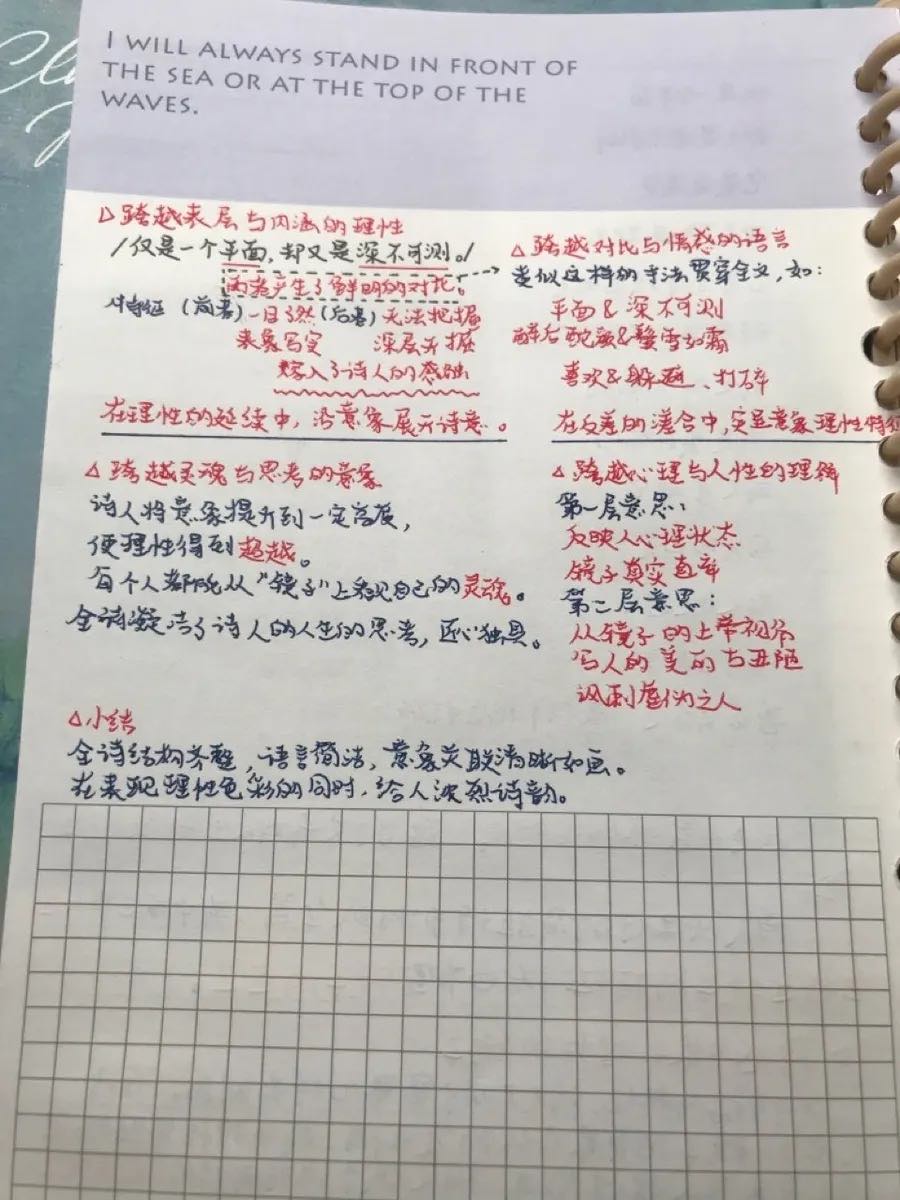 I WILL ALWAYS STAND IN FRONT OF
THE SEA OR AT THE TOP OF THE
WAVES.
△跨越表层与内涵的理性
/仅是一个平面,却又是深不可测。/
两者产生了鲜明的对比。
特征 (前者)一目了然(后者)无法把握
表象写实 深层开掘
嫁入了诗人的感触
在理性的延续中,沿意象展开诗意。
△跨越对比与情感的语言
类似这样的手法贯穿全文,如:
平面&深不可测
醉后酡颜&鬓雪如霜
喜欢&躲避、打碎
在反差的落合中,突显意象理性特征
△跨越灵魂与思考的意象
诗人将意象提升到一定高度,
使理性得到超越。
每个人都能从“镜子”上看见自己的灵魂。
全诗凝结了诗人的人生的思考,匠心独具。
△跨越心理与人性的理解
第一层意思:
反映人心理状态
镜子真实直率
第二层意思:
从镜子的上帝视角
写人的美丽与丑陋
讽刺虚伪之人
△小结
全诗结构齐整,语言简洁,意象关联清晰如画。
在表现理性色彩的同时,给人浓烈诗韵。